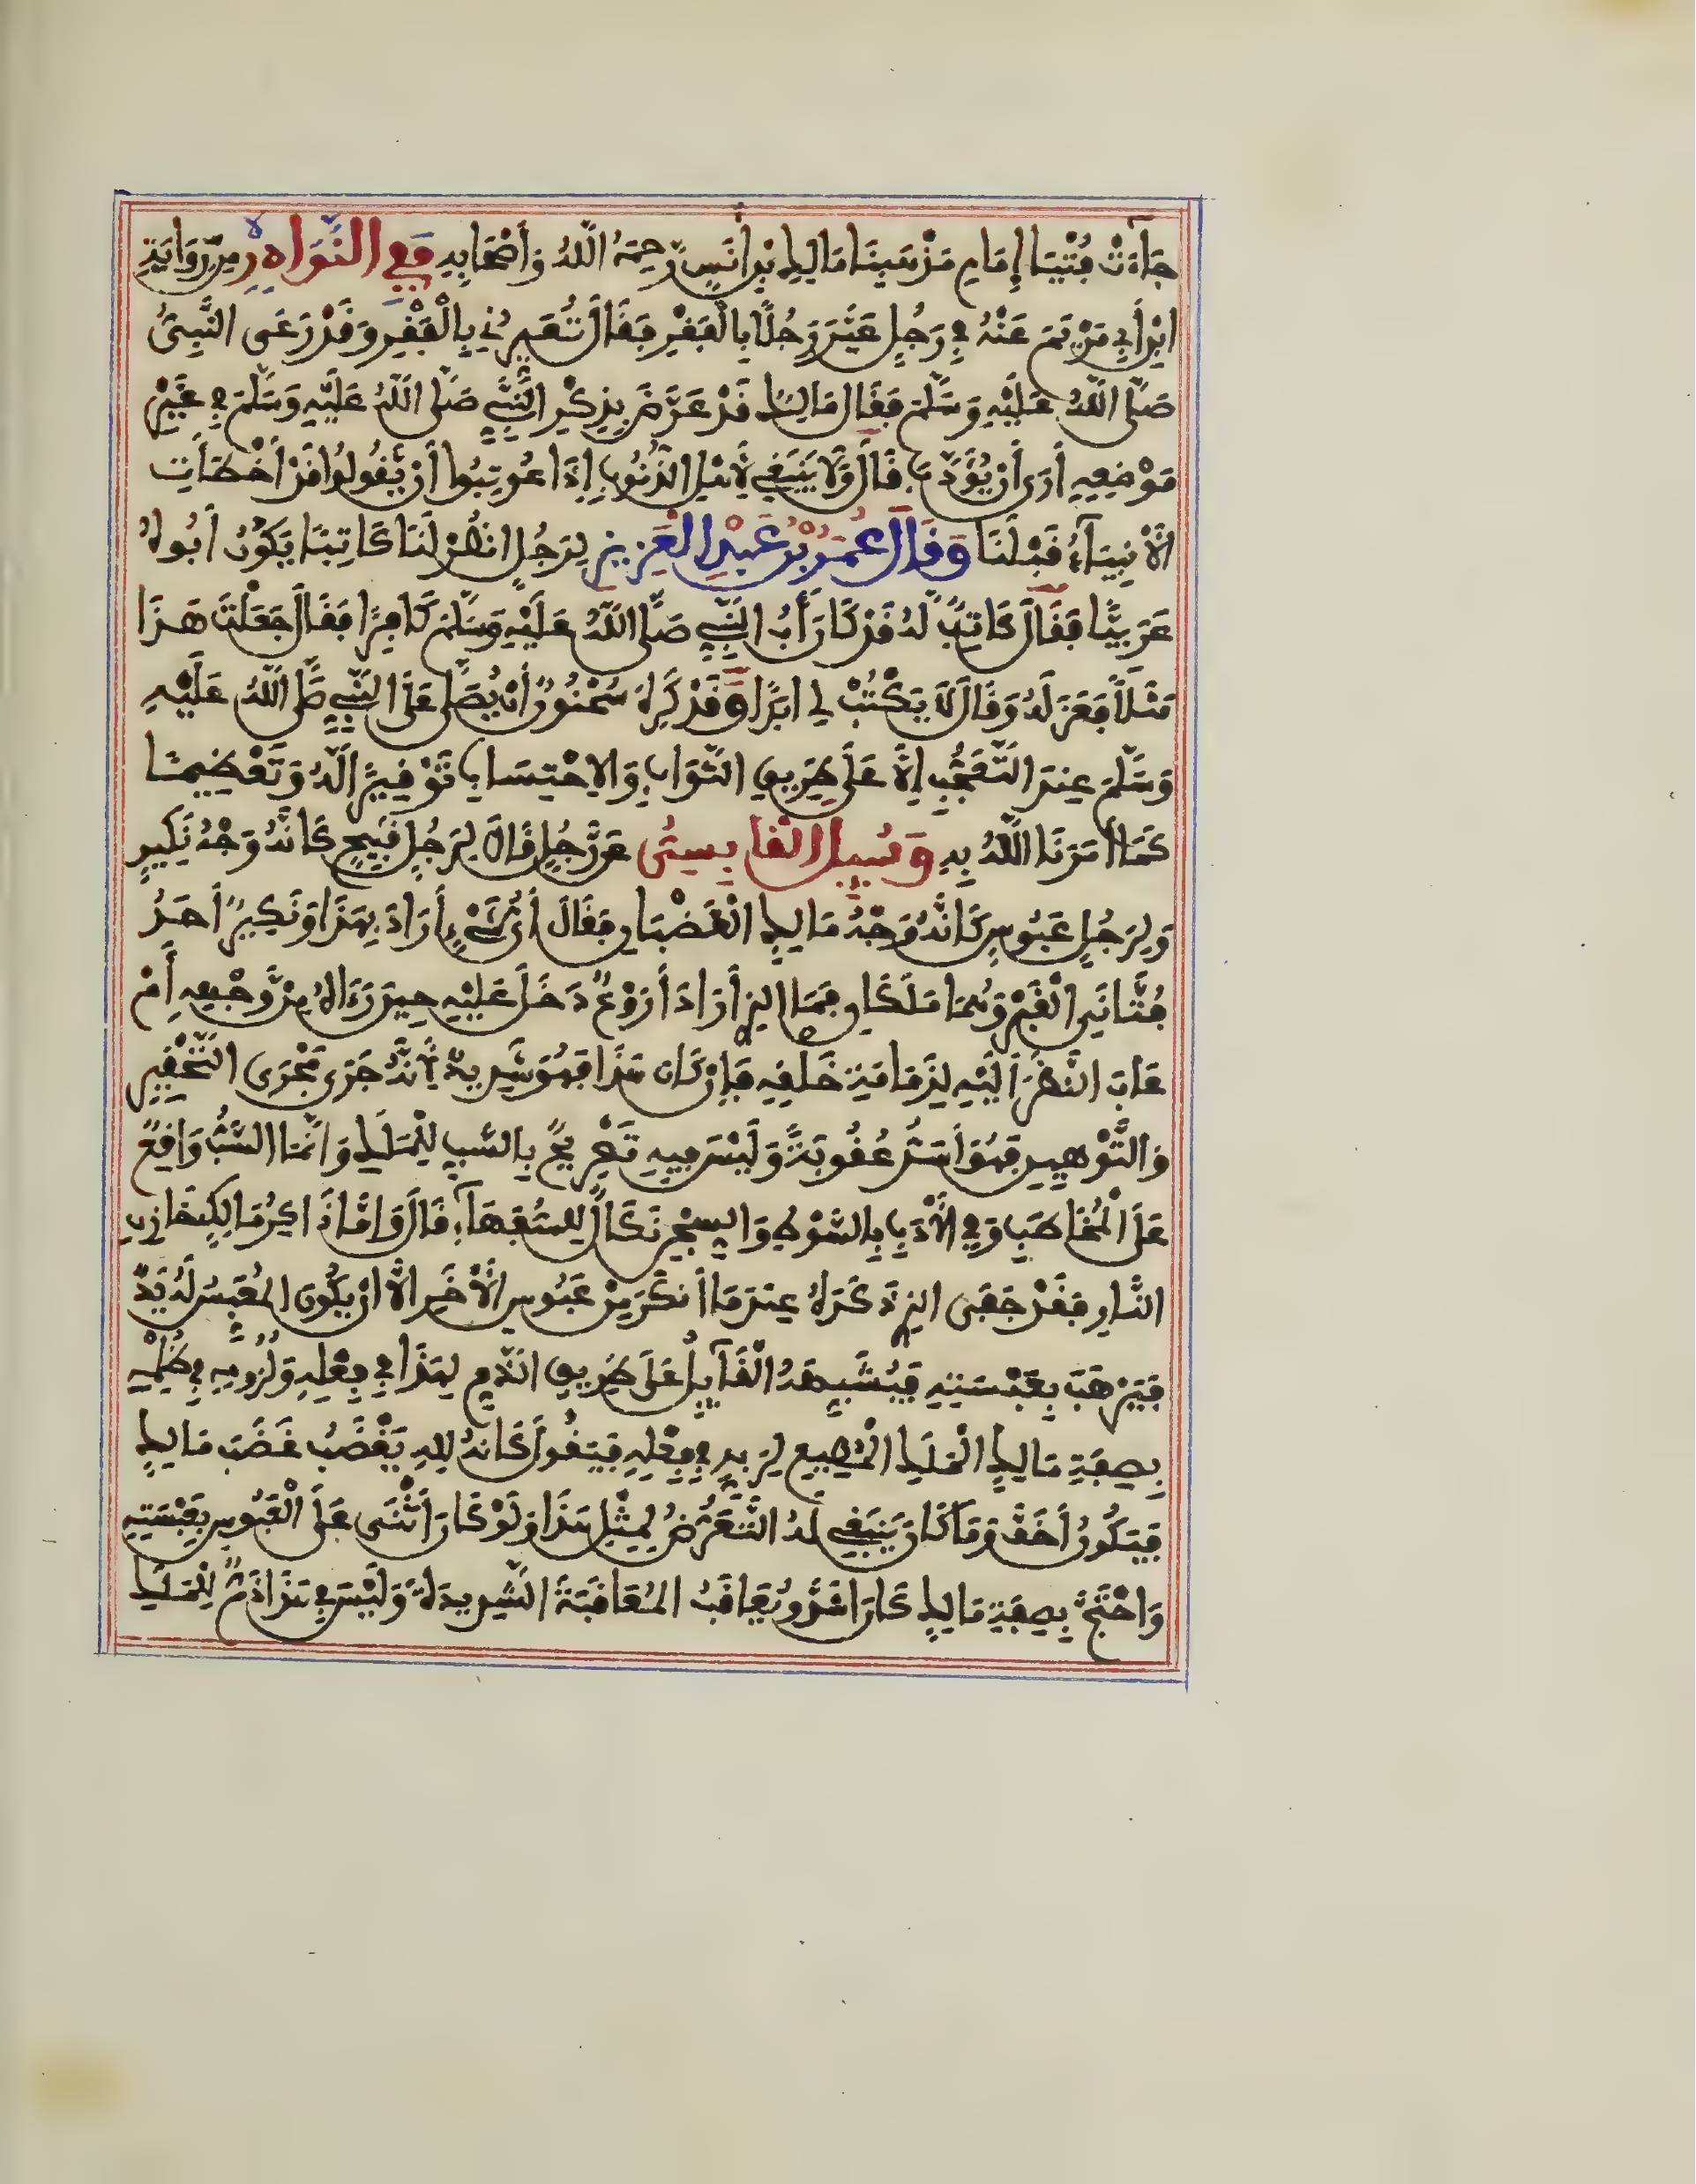 جَآءَتْ فُتْيَا إِمَامِ مَذْهَبِنَا مَالِكِ بْنِ أَنَسٍ رَحِمَهُ اللَّهُ وَأَصْحَابِهِ فَفِي النَّوَادِرِ مِن رِّوَايَةِ
ابْنِ أَبِي مَرْيَمَ عَنْهُ فِي رَجُلٍ عَيَّرَ رَجُلًا بِالْفَقْرِ فَقَالَ تُعَيِّرُنِي بِالْفَقْرِ وَقَدْ رَعَى النَّبِيُّ
صَلَّى اللَّهُ عَلَيْهِ وَسَلَّمَ فَقَالَ مَالِكٌ قَدْ عَرَّضَ بِذِكْرِ النَّبِيِّ صَلَّى اللَّهُ عَلَيْهِ وَسَلَّمَ فِي غَيْرِ
مَوْضِعِهِ أَرَى أَنْ يُؤَدَّبَ قَالَ وَلَا يَنْبَغِي لِأَهْلِ الذُّنُوبِ إِذَا عُوتِبُوا أَنْ يَقُولُوا قَدْ أَخْطَأَتِ
الْأَنْبِيَآءُ قَبْلَنَا وَقَالَ عُمَرُ بْنُ عَبْدِ الْعَزِيزِ لِرَجُلٍ انْظُرْ لَنَا كَاتِبًا يَكُونُ أَبُوهُ
عَرَبِيًّا فَقَالَ كَاتِبٌ لَهُ قَدْ كَانَ أَبُ النَّبِيِّ صَلَّى اللَّهُ عَلَيْهِ وَسَلَّمَ كَافِرًا فَقَالَ جَعَلْتَ هَذَا
مَثَلًا فَعَزَلَهُ وَقَالَ لَا يَكْتُبْ لِي ابَدًا وَقَدْ كَرِهَ سُحْنُونٌ أَنْ يُصَلَّى عَلَى النَّبِيِّ صَلَّى اللَّهُ عَلَيْهِ
وَسَلَّمَ عِنْدَ التَّعَجُّبِ إِلَّا عَلَى طَرِيقِ الثَّوَابِ وَالِاحْتِسَابِ تَوْقِيرًا لَّهُ وَتَعْظِيمًا
كَمَا أَمَرَنَا اللَّهُ بِهِ وَسُئِلَ الْقَابِسِيُّ عَن رَّجُلٍ قَالَ لِرَجُلٍ قَبِيحٍ كَأَنَّهُ وَجْهُ نَكِيرٍ
وَلِرَجُلٍ عَبُوسٍ كَأَنَّهُ وَجْهُ مَالِكٍ الْغَضْبَانِ فَقَالَ أَيُّ شَيْءٍ أَرَادَ بِهَذَا وَنَكِيرٌ أَحَدُ
فَتَّانَيِ الْقَبْرِ وَهُمَا مَلَكَانِ فَمَا الَّذِي أَرَادَ أَرَوْعٌ دَخَلَ عَلَيْهِ حِينَ رَءَاهُ مِن وَّجْهِهِ أَمْ
عَابَ النَّظَرَ إِلَيْهِ لِدَمَامَةِ خَلْقِهِ فَإِنْ كَانَ هَذَا فَهُوَ شَدِيدٌ لِأَنَّهُ جَرَى مَجْرَى التَّحْقِيرِ
وَالتَّوْهِينِ فَهُوَ أَشَدُّ عُقُوبَةً وَلَيْسَ فِيهِ تَصْرِيحٌ بِالسَّبِّ لِلْمَلَكِ وَإِنَّمَا السَّبُّ وَاقِعٌ
عَلَى الْمُخَاطَبِ وَفِي الْأَدَبِ بِالسَّوْطِ وَالسِّجْنِ نَكَالٌ لِلسُّفَهَآءِ قَالَ وَامَّا ذَاكِرُ مَالِكٍ خَازِنِ
النَّارِ فَقَدْ جَفَى الَّذِي ذَكَرَهُ عِنْدَ مَا أَنْكَرَ مِنْ عَبُوسِ الْأَخَرِ الَّا انْ يَكُونَ الْمُعَبِّسُ لَهُ يَدٌ
فَيَرْهَبَ بِعَبْسَتِهِ فَيُشَبِّهَهُ الْقَآئِلُ عَلَى طَرِيقِ الذَّمِّ لِهَذَا فِي فِعْلِهِ وَلُزُومِهِ فِي ظُلْمِهِ
بِصِفَةِ مَالِكٍ الْمَلَكِ الْمُطِيعِ لِرَبِّهِ فِي فِعْلِهِ فَيَقُولُ كَأَنَّهُ لِلَّهِ يَغْضَبُ غَضَبَ مَالِكٍ
فَيَكُونُ أَخَفَّ وَمَا كَانَ يَنْبَغِي لَهُ التَّعَرُّضُ لِمِثْلِ هَذَا وَلَوْ كَانَ أَثْنَى عَلَى الْعَبُوسِ بِعَبْسَتِهِ
وَاحْتَجَّ بِصِفَةِ مَالِكٍ كَانَ اشَدَّ وَيُعَاقَبُ الْمُعَاقَبَةَ الشَّدِيدَةَ وَلَيْسَ فِي هَذَا ذَمٌّ لِلْمَلَكِ